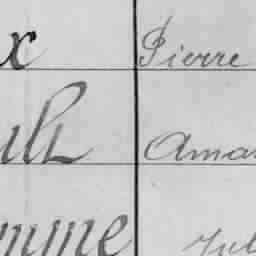 x Pierre
ulz Aman
mme Jul